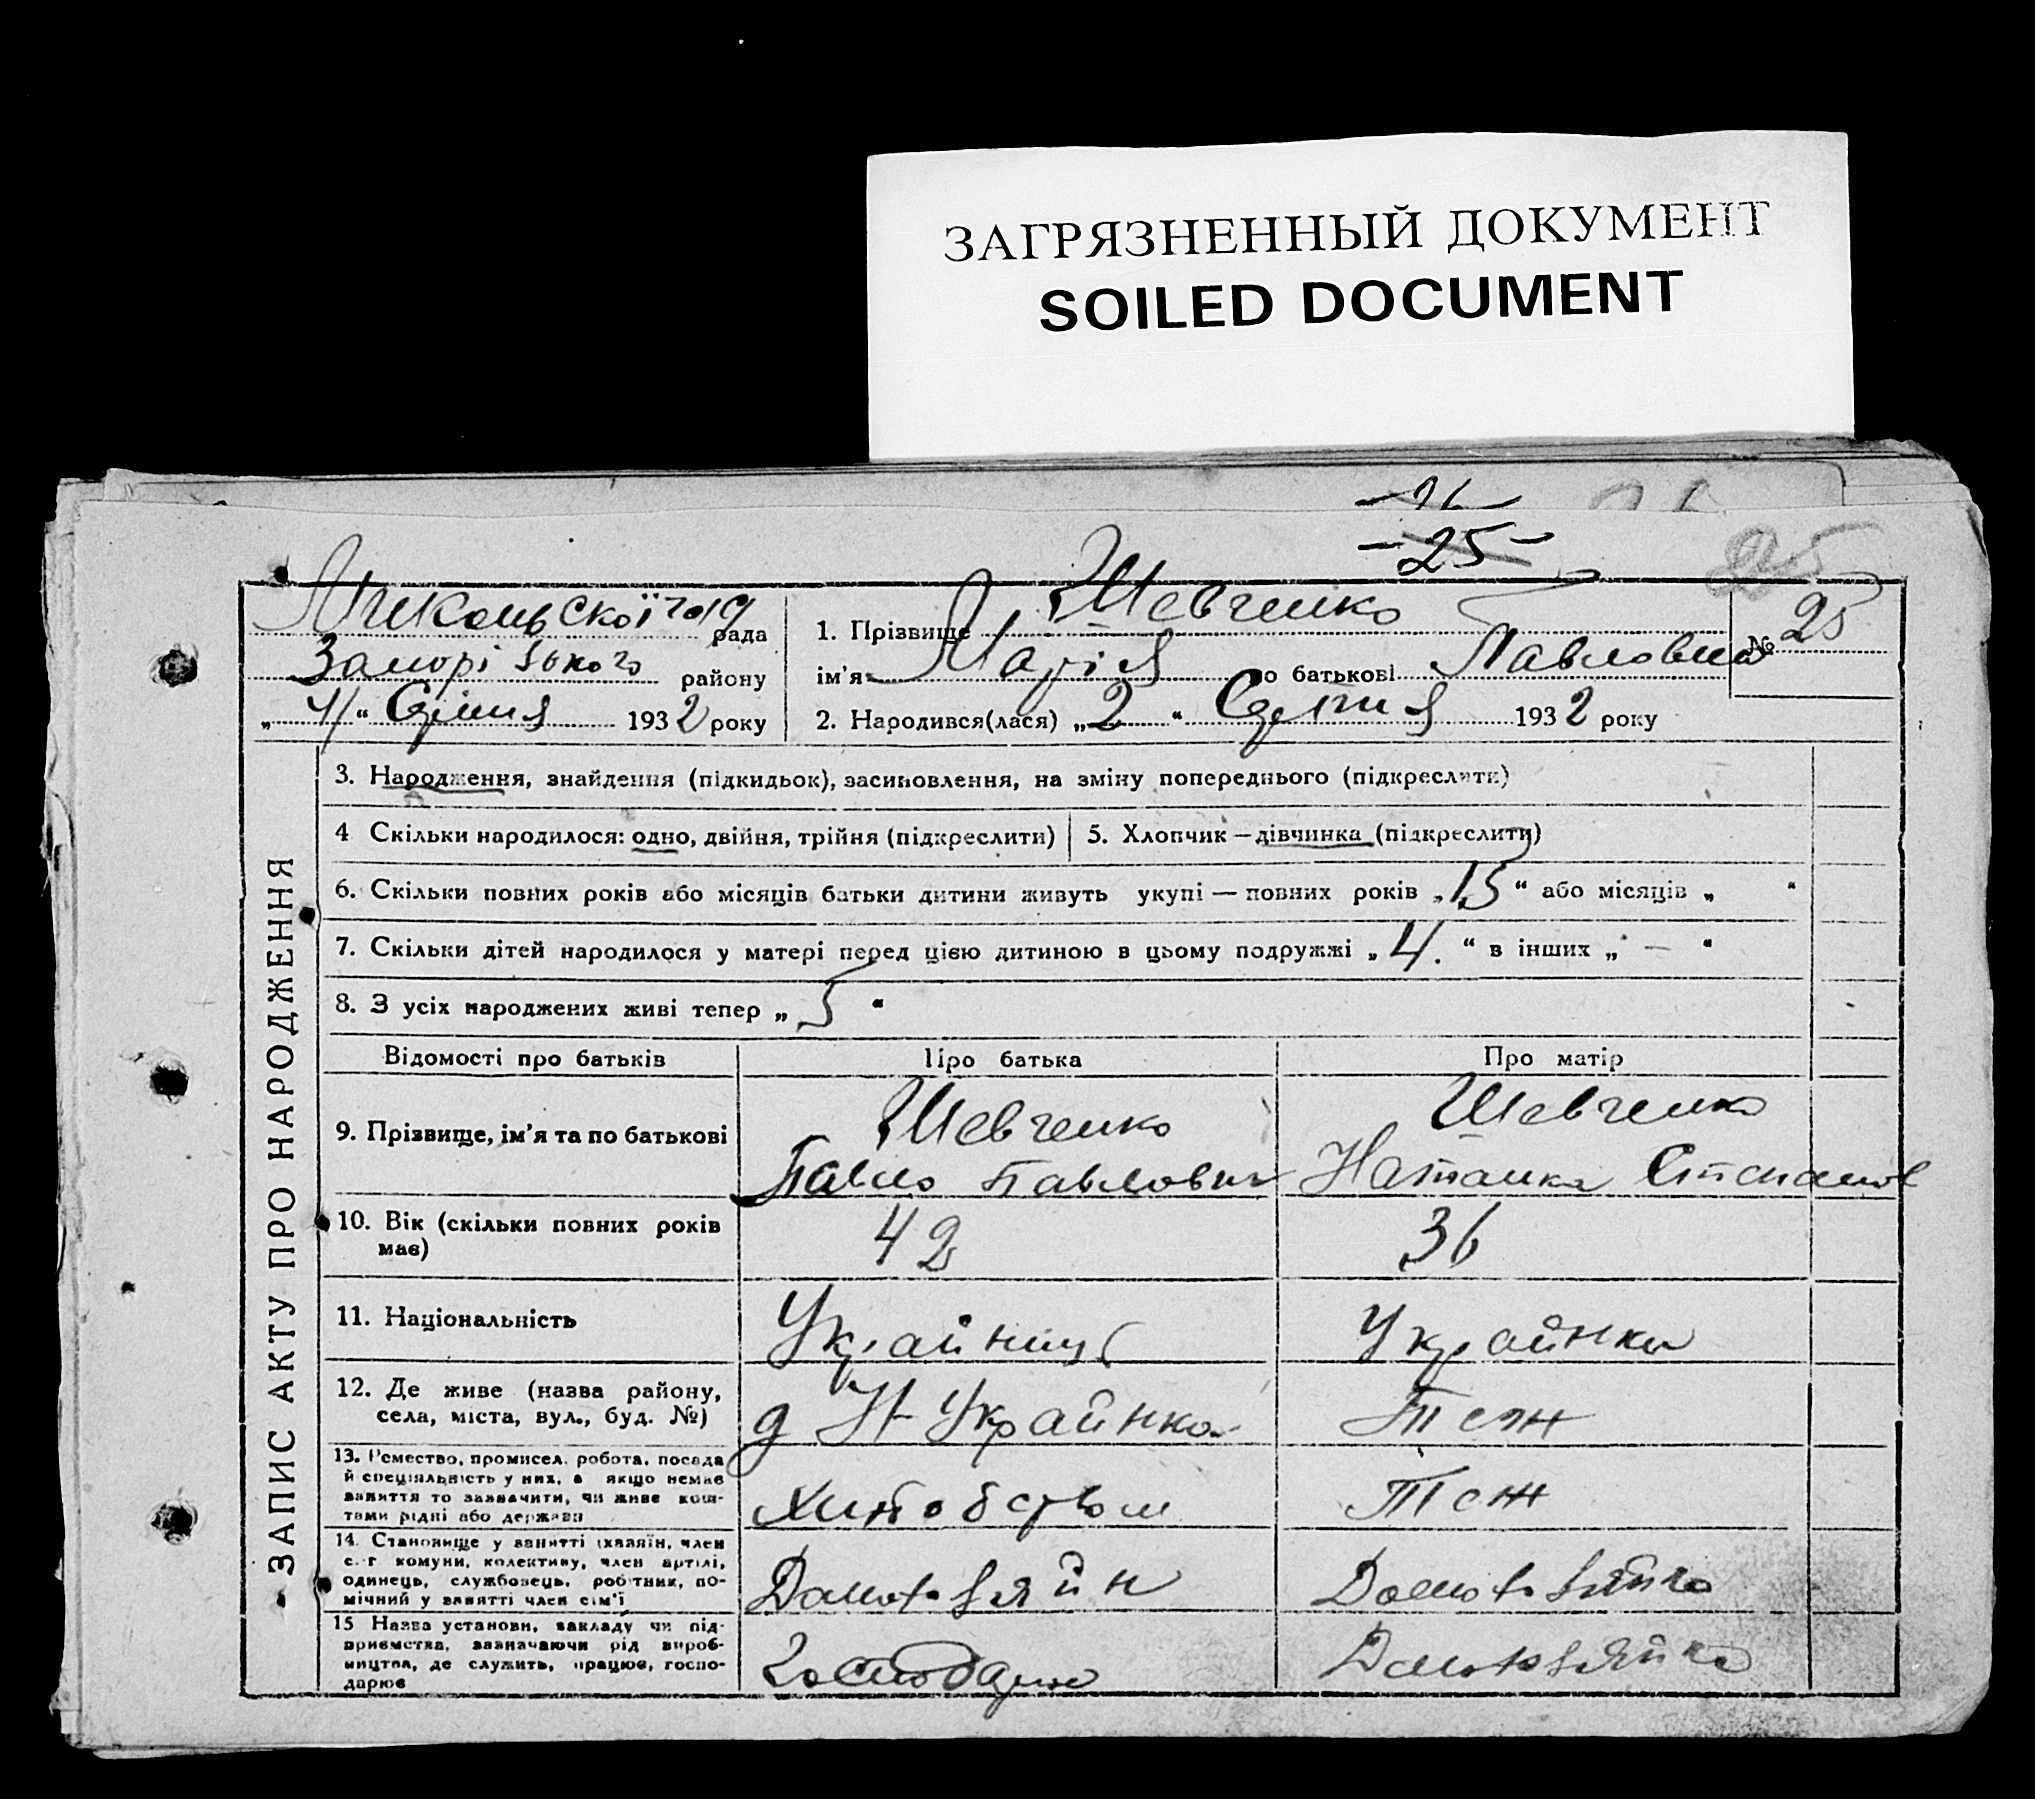 ЗАГРЯЗНЕННЫЙ ДОКУМЕНТ
SOILED DOCUMENT
-26-
-25-
25
рада
району
„4“ Серпня 1932 року
1. Прізвище Шевченко
№ 25
ім’я Марія по батькові Павловна
2. Народився(лася) „2“ Серпня 1932 року
ЗАПИС АКТУ ПРО НАРОДЖЕННЯ
3. Народження, знайдення (підкидьок), засиновлення, на зміну попереднього (підкреслити)
4 Скільки народилося: одно, двійня, трійня (підкреслити)
5. Хлопчик — дівчинка (підкреслити)
6. Скільки повних років або місяців батьки дитини живуть укупі — повних років „15“ або місяців „ “
7. Скільки дітей народилося у матері перед цією дитиною в цьому подружжі „4.“ в інших „ — “
8. З усіх народжених живі тепер „5“
Відомості про батьків
Про батька
Про матір
9. Прізвище, ім’я та по батькові
Шевченко
Павло Павлович
Шевченко
Наталка Степанов
10. Вік (скільки повних років
має)
42
36
11. Національність
Українець
Українка
12. Де живе (назва району,
села, міста, вул., буд. №)
Н-Українка
Теж
13. Ремество, промисел, робота, посада
й спеціяльність у них, а якщо немає
заняття то зазначити, чи живе кош-
тами рідні або держави
Хліборобством
Теж
14. Становище у занятті (хазяїн, член
с.-г комуни, колективу, член артілі,
одинець, службовець, робітник, по-
мічний у занятті член сім’ї
Домохазяйн
Домохазяйка
15 Назва установи, закладу чи під-
приємства, зазначаючи рід вироб-
ництва, де служить, працює, госпо-
дарює
Господарює
Домохазяйка